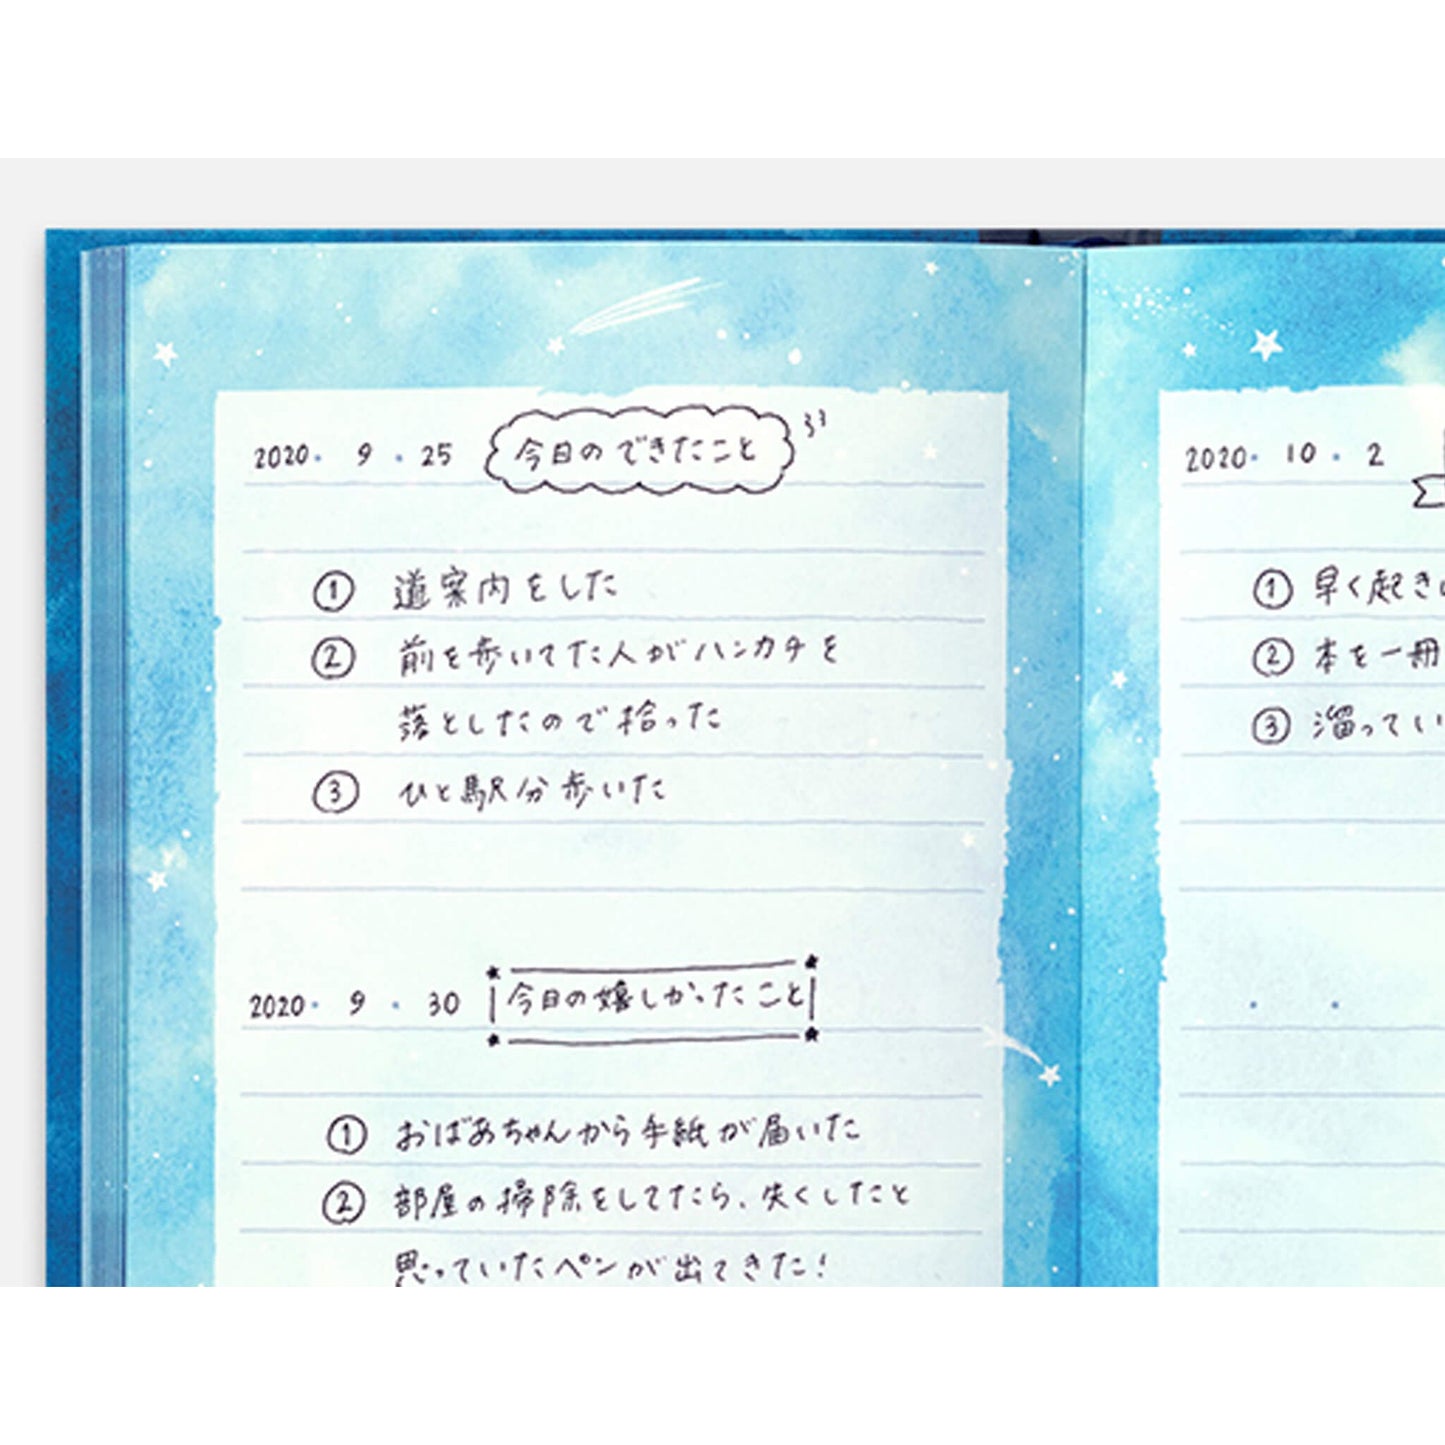 2020・ 9 ・ 25 今日のできたこと
① 道案内をした
② 前を歩いてた人がハンカチを
落としたので拾った
③ ひと駅分歩いた
2020・ 9 ・ 30 今日の嬉しかったこと
① おばあちゃんから手紙が届いた
② 部屋の掃除をしてたら、失くしたと
思っていたペンが出てきた!
2020・ 10 ・ 2
① 早く起き
② 本を一冊
③ 溜ってい